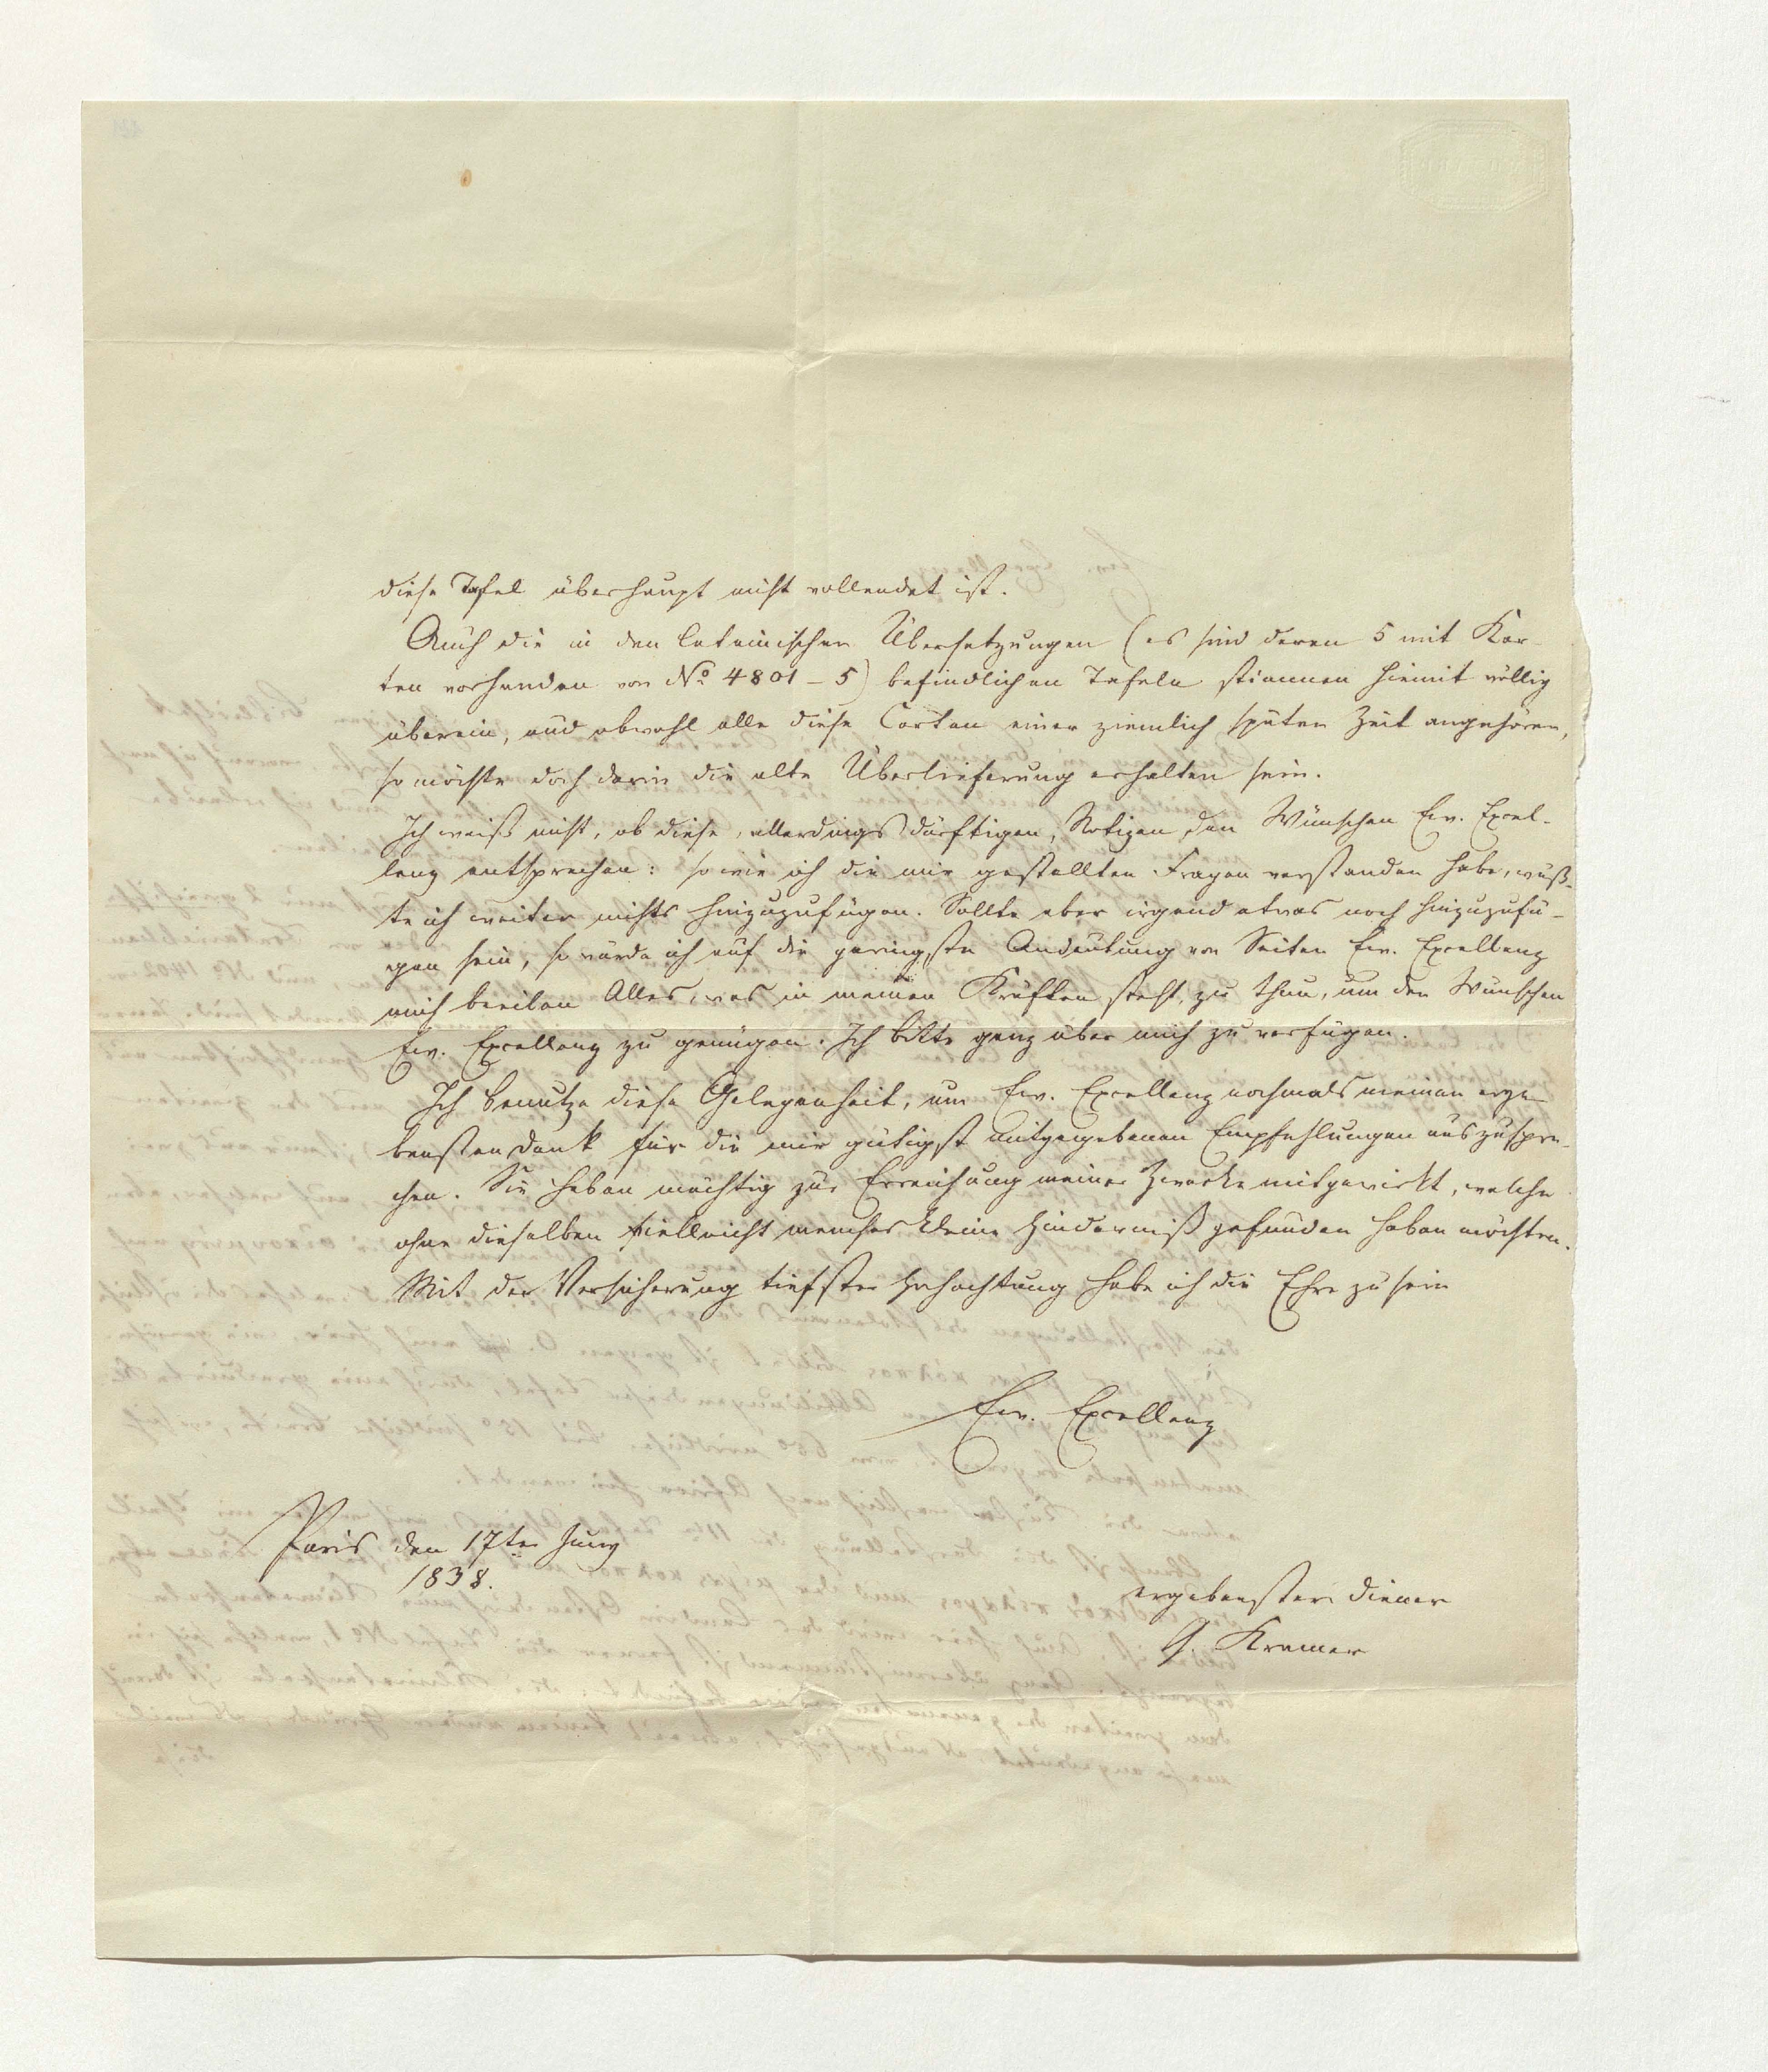 diese Tafel überhaupt nicht vollendet ist.
Auch die in den lateinischen Übersetzungen (es sind deren 5 mit Kar-
ten vorhanden von No 4801–5) befindlichen Tafeln stimmen hiemit völlig
überein, und obwohl alle diese Carten einer ziemlich späten Zeit angehören,
so möchte doch darin die alte Überlieferung erhalten sein.
Ich weiß nicht, ob diese, allerdings dürftigen, Notizen den Wünschen Ew. Excel-
lenz entsprechen: so wie ich die mir gestellten Fragen verstanden habe, wüß-
te ich weiter nichts hinzuzufügen. Sollte aber irgend etwas noch hinzuzufü-
gen sein, so würde ich auf die geringste Andeutung von Seiten Ew. Excellenz
mich beeilen Alles, was in meinen Kräften steht, zu thun, um den Wünschen
Ew. Excellenz zu genügen. Ich bitte ganz über mich zu verfügen.
Ich benutze diese Gelegenheit, um Ew. Excellenz nochmals meinen erge-
bensten Dank für die mir gütigst mitgegebenen Empfehlungen auszuspre-
chen. Sie haben mächtig zur Erreichung meiner Zwecke mitgewirkt, welche
ohne dieselben vielleicht manches kleine Hinderniß gefunden haben möchten.
Mit der Versicherung tiefster Hochachtung habe ich die Ehre zu sein
Ew. Excellenz
Paris den 17ten Juny
1838.
ergebenster Diener
G. Kramer